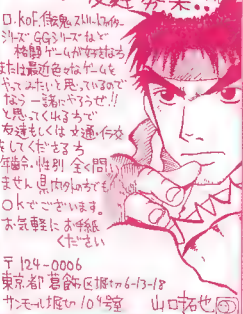 友達募集…
ロ.KOF.侍魂.ストリートファイター
シリーズ GGシリーズなど
格闘ゲームが好きなら
または最近色々なゲームを
やってみたいと思っているので
なら一緒にやろうぜ!!
と思ってくれる方で
友達もしくは文通、イラ交
をしてくださる方
年齢、性別全く問い
ません 県内外の方でも
OKでございます。
お気軽にお手紙
ください
〒124-0006
東京都葛飾区堀切6-13-18
サンモール堀切104号室 山口拓也